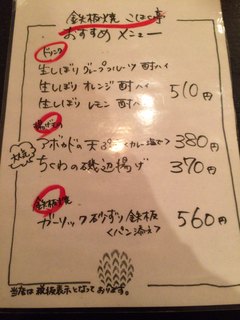 鉄板焼 こはく亭
おすすめメニュー
ドリンク
生しぼり グレープフルーツ 酎ハイ
生しぼり オレンジ 酎ハイ 510円
生しぼり レモン 酎ハイ
揚げもの
大人気 アボカドの天ぷら<カレー塩で> 380円
ちくわの磯辺揚げ 370円
鉄板焼
ガーリック砂ずり鉄板 560円
<パン添え>
当店は税抜表示となっております。